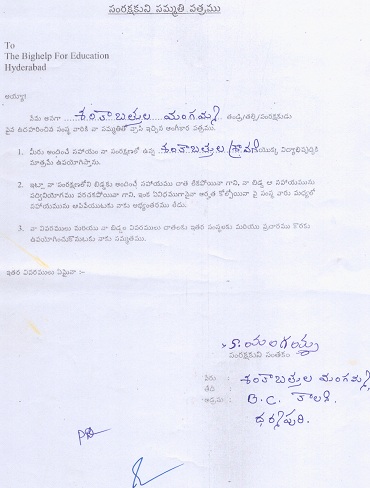 సంరక్షకుని సమ్మతి పత్రము
To
The Bighelp For Education
Hyderabad
అయ్యా!
నేను అనగా మంగమ్మ తండ్రి/తల్లి/సంరక్షకుడు
పైన ఉదహరించిన సంస్థ వారికి నా సమ్మతితో వ్రాసి ఇచ్చిన అంగీకార పత్రము.
1. మీరు అందించే సహాయం నా సంరక్షణలో ఉన్న యొక్క విద్యాభివృద్ధికి
మాత్రమే ఉపయోగిస్తాను.
2. ఇట్లా నా సంరక్షణలోని బిడ్డకు అందించే సహాయము దాత లేకపోయినా గాని, నా బిడ్డ ఆ సహాయమును
సద్వినియోగము పరచకపోయినా గాని, ఇంక ఏవిధముగానైనా అర్హత కోల్పోయినా పై సంస్థ వారు మధ్యలో
సహాయమును ఆపివేయుటకు నాకు అభ్యంతరము లేదు.
3. నా వివరములు మరియు నా బిడ్డల వివరములు దాతలకు ఇతర సంస్థలకు మరియు ప్రచారము కొరకు
ఉపయోగించుకొనుటకు నాకు సమ్మతము.
ఇతర వివరములు ఏమైనా :-
సంరక్షకుని సంతకం
పేరు : మంగమ్మ
తేది :
అడ్రసు : B.C. కాలని
ధర్మపురి.